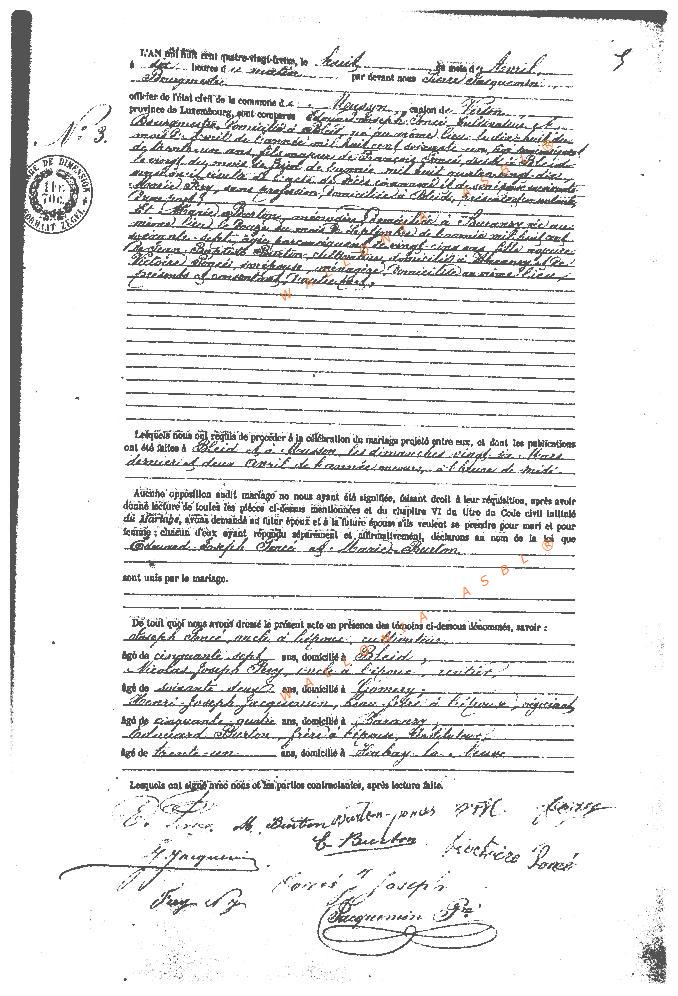 L'AN mil huit cent quatre-vingt-treize, le huit du mois d'Avril,
à dix heures du matin par devant nous Pierre Jacquemin
Bourgmestre
officier de l'état civil de la commune de Musson, canton de Virton,
province de Luxembourg, sont comparus Edouard Joseph Poncé, cultivateur et
Bourgmestre, domicilié à Bleid, né au même lieu le dix huit du
mois d'Avril de l'année mil huit cent soixante un,
de trente un ans, fils majeur de François Poncé, décédé à Bleid
le vingt du mois de de l'année mil huit
Marie Féry, sans profession, domiciliée à Bleid,
Et Marie Burton, ménagère, domiciliée à Baranzy, née au
même lieu, le douze du mois de Septembre de l'année mil huit cent
soixante-sept, âgée de vingt cinq ans, fille majeure
de Jean-Baptiste Burton, cultivateur, domicilié à Baranzy et de
Victoire Poncé, son épouse, ménagère, domiciliée au même lieu,
présents et consentants, d'autre part,
N° 3.
5
1 FR. 70C.
WALLONIA ASBL ®
Lesquels nous ont requis de procéder à la célébration du mariage projeté entre eux, et dont les publications
ont été faites à Bleid et à Musson, les dimanches vingt six Mars
dernier et deux Avril de l'année courante, à l'heure de midi
Aucune opposition audit mariage ne nous ayant été signifiée, faisant droit à leur réquisition, après avoir
donné lecture de toutes les pièces ci-dessus mentionnées et du chapitre VI du titre du Code civil intitulé
du Mariage, avons demandé au futur époux et à la future épouse s'ils veulent se prendre pour mari et pour
femme ; chacun d'eux ayant répondu séparément et affirmativement, déclarons au nom de la loi que
Edouard Joseph Poncé et Marie Burton
sont unis par le mariage.
WALLONIA ASBL ®
De tout quoi nous avons dressé le présent acte en présence des témoins ci-dessous dénommés, savoir :
Joseph Poncé, oncle à l'épouse, cultivateur
âgé de cinquante sept ans, domicilié à Bleid,
Nicolas Joseph Féry, oncle à l'époux, rentier,
âgé de soixante deux ans, domicilié à Gomery,
Henri-Joseph Jacquemin, beau frère à l'époux, négociant,
âgé de cinquante-quatre ans, domicilié à Baranzy,
Edouard Burton, frère à l'épouse, Instituteur,
âgé de trente-un ans, domicilié à Habay la Neuve
Lesquels ont signé avec nous et les parties contractantes, après lecture faite.
E. Poncé M. Burton Burton-poncé
E Burton Victoire Poncé
Jacquemin
Poncé Joseph
Féry N J
Jacquemin Pre